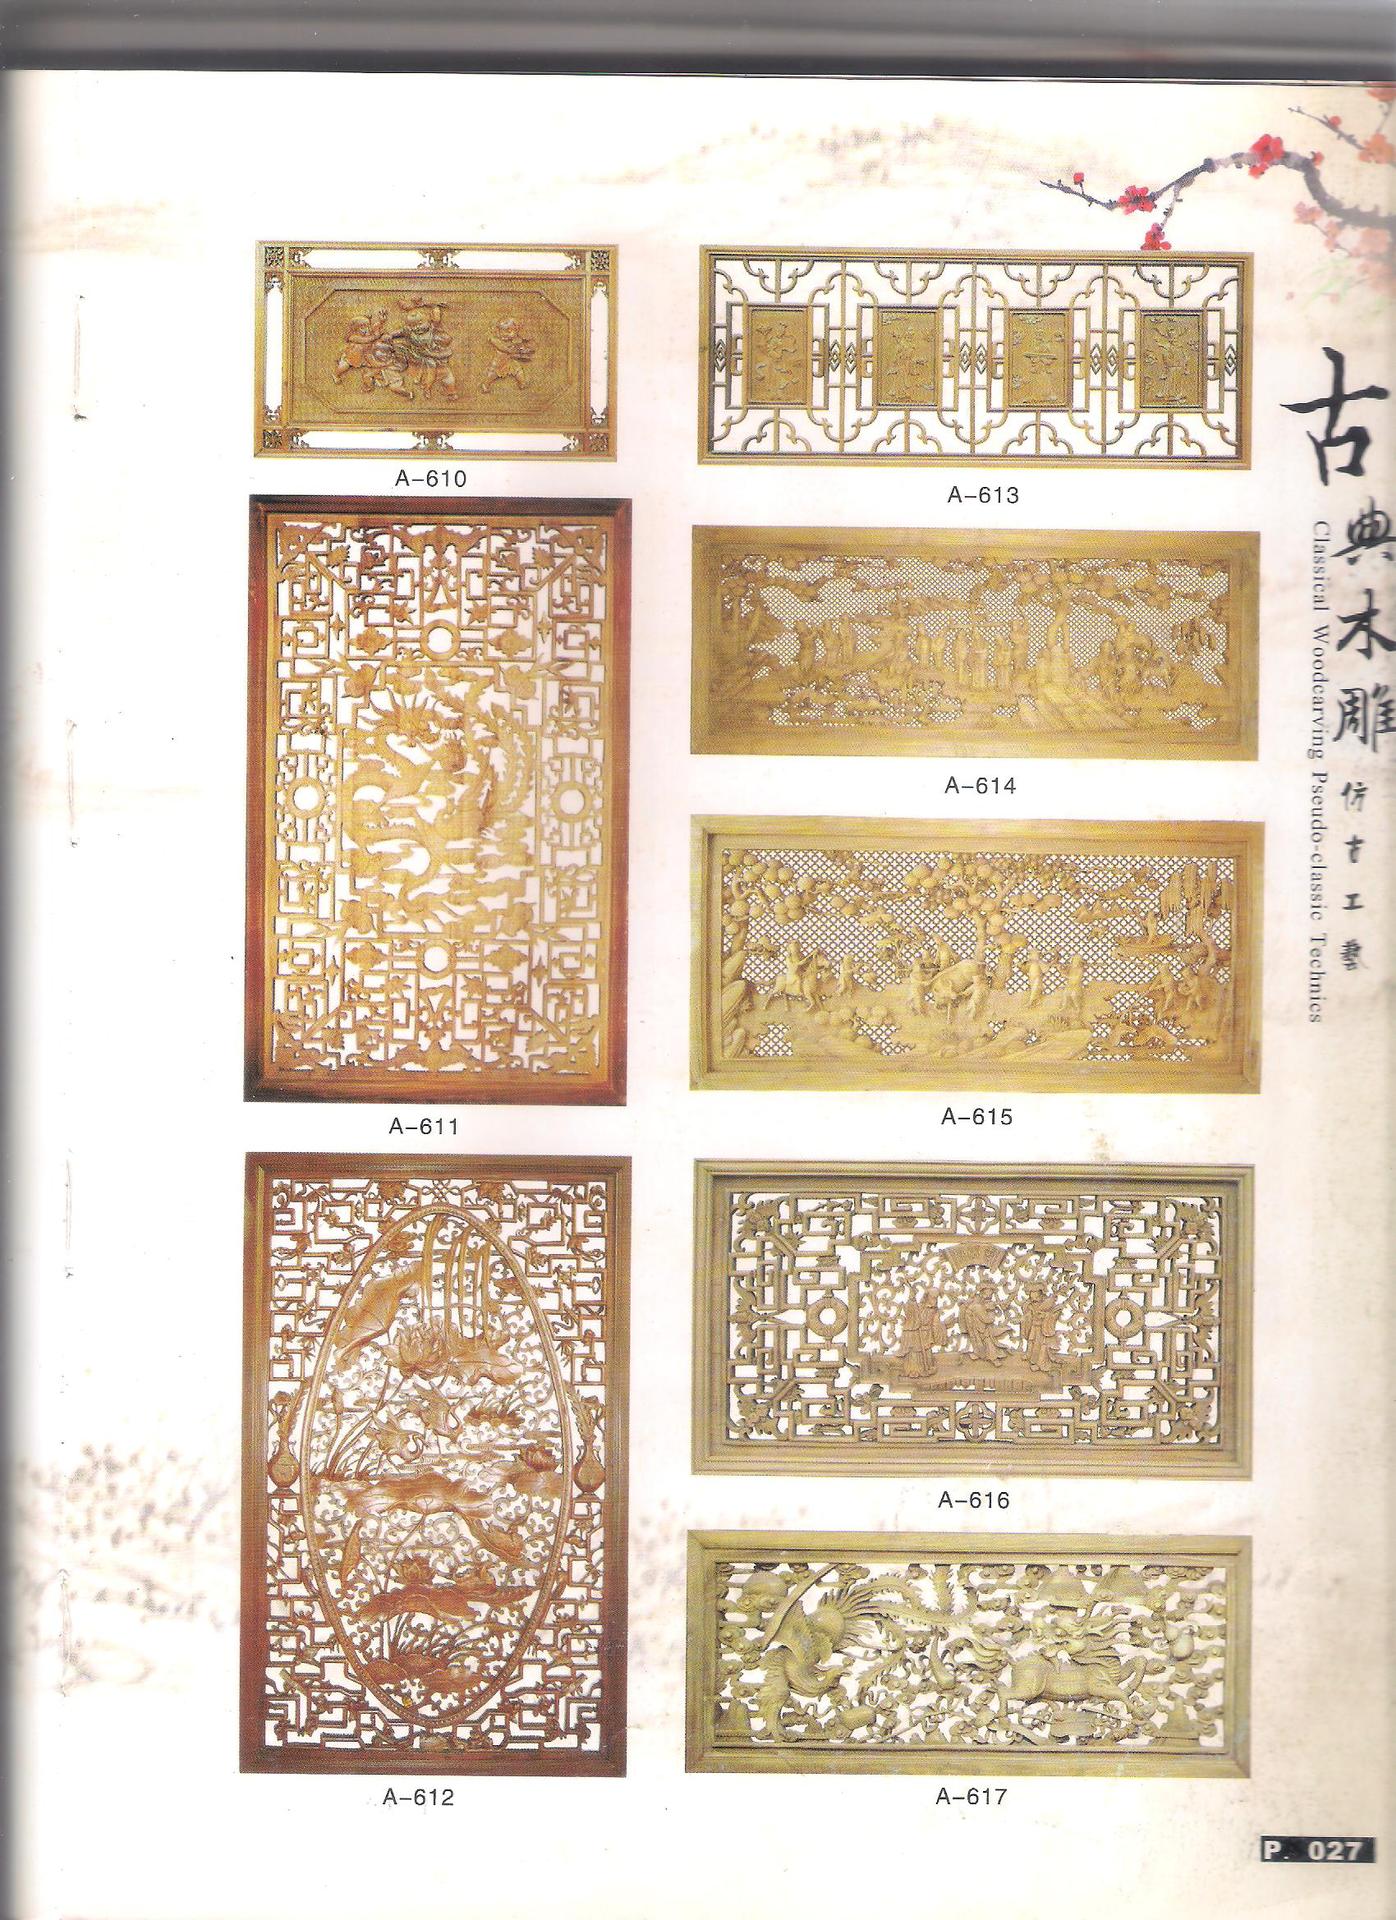 A-610
A-613
A-611
A-614
A-615
A-612
A-616
A-617
古典木雕 仿古工藝
Classical Woodcarving Pseudo-classic Technics
P. 027